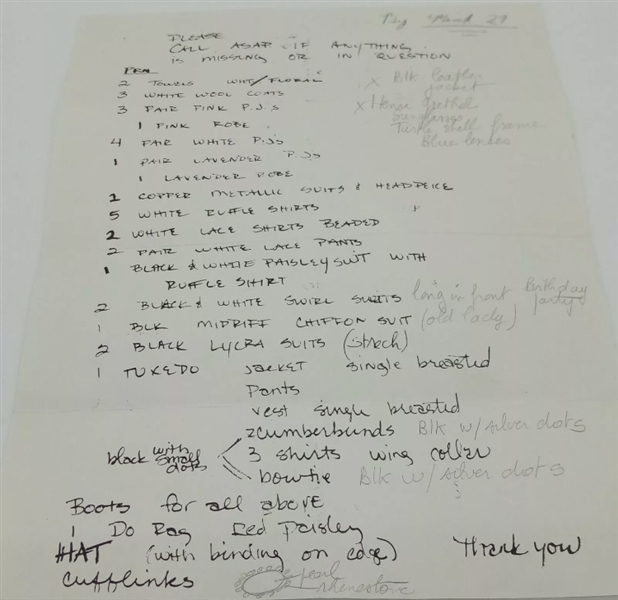 PLEASE
CALL ASAP IF ANYTHING
IS MISSING OR IN QUESTION
March 29
2 TOWELS WHT/FLORAL
3 WHITE WOOL COATS
X Blk leather
jacket
3 PAIR PINK P.J.S
X
sunglasses
1 PINK ROBE
Turtle shell frame
Blue lenses
4 PAIR WHITE P.J.S
1 PAIR LAVENDER P.J.S
1 LAVENDER ROBE
2 COPPER METALLIC SUITS & HEADPEICE
5 WHITE RUFFLE SHIRTS
2 WHITE LACE SHIRTS BEADED
2 PAIR WHITE LACE PANTS
1 BLACK & WHITE PAISLEY SUIT WITH
RUFFLE SHIRT
2 BLACK & WHITE SWIRL SUITS long in front Birthday party
1 BLK MIDRIFF CHIFFON SUIT (old lady)
2 BLACK LYCRA SUITS (strech)
1 TUXEDO JACKET single breasted
Pants
vest single breasted
2 cumberbunds Blk w/silver dots
black with small dots
3 shirts wing collar
bowtie Blk w/silver dots
Boots for all above
1 Do Rag Red Paisley
HAT (with binding on edge) Thank you
Cufflinks pearl
rhinestone